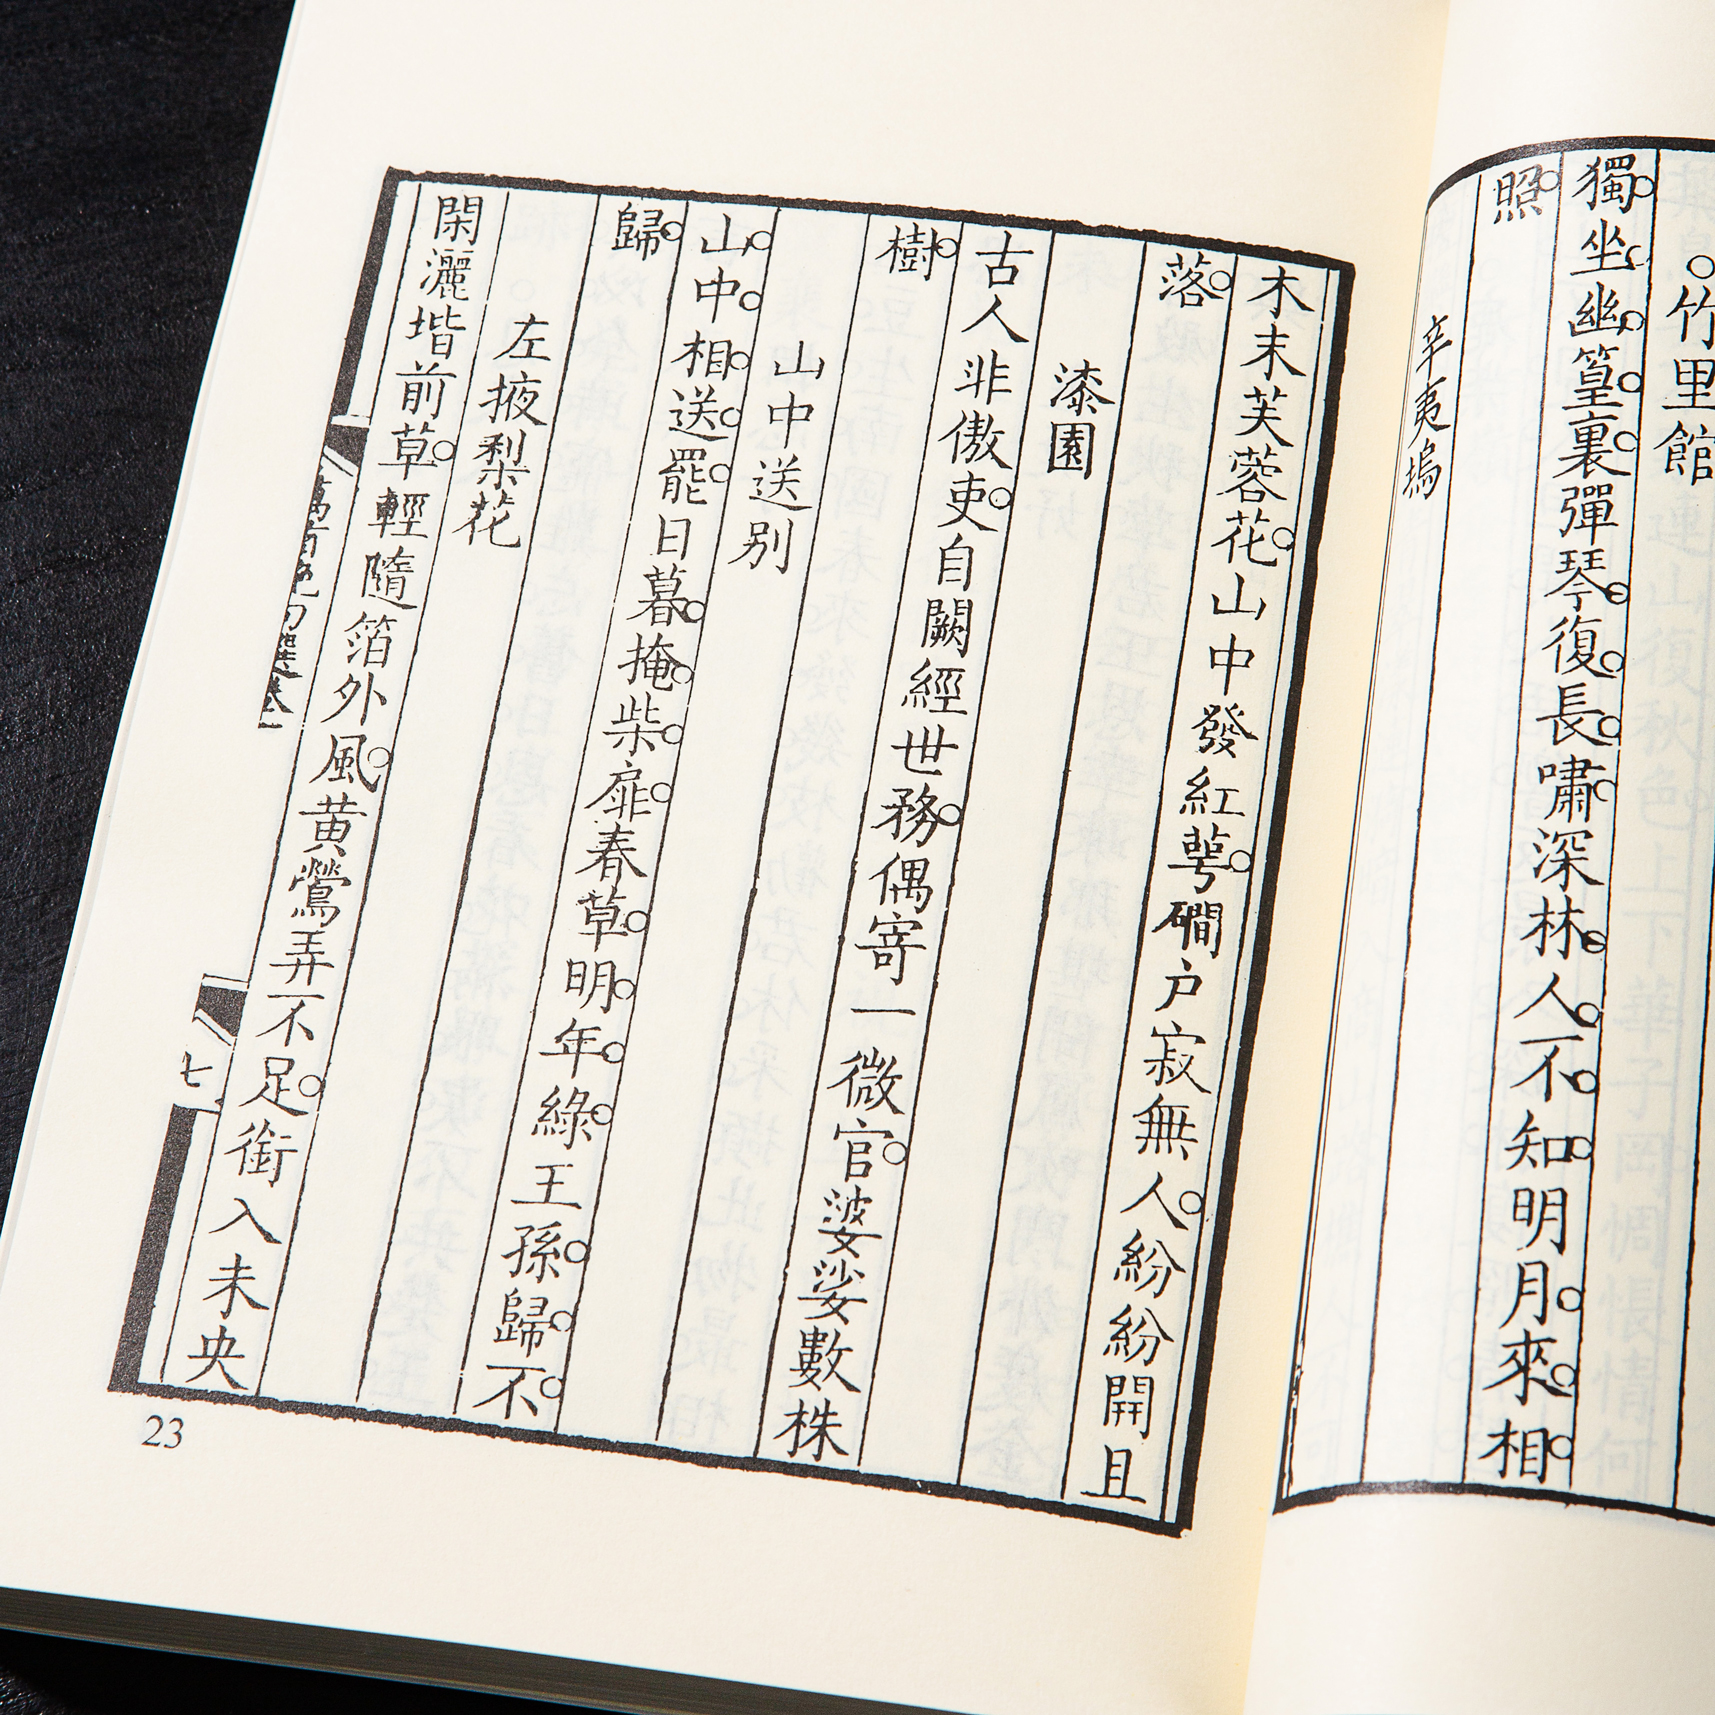 ○竹里館
獨坐幽篁裏彈琴復長嘯深林人不知明月來相
照
辛夷塢
木末芙蓉花山中發紅萼磵戶寂無人紛紛開且
落
漆園
古人非傲吏自闕經世務偶寄一微官婆娑數株
樹
山中送別
山中相送罷日暮掩柴扉春草明年綠王孫歸不
歸
左掖梨花
閑灑堦前草輕隨箔外風黃鶯弄不足銜入未央
七
23